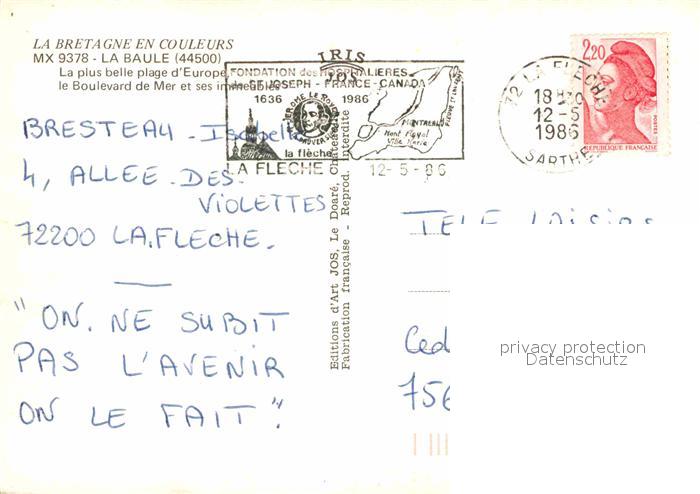 LA BRETAGNE EN COULEURS
MX 9378 - LA BAULE (44500)
La plus belle plage d'Europe,
le Boulevard de Mer et ses immeubles
IRIS
JOS
FONDATION des HOSPITALIERES
de ST JOSEPH - FRANCE - CANADA
1636 1986
JEROME LE ROYER
MONTREAL
Mont Royal
Ville Marie
la flèche
LA FLECHE 12-5-86
72 LA FLECHE
18 H30
12-5
1986
SARTHE
2,20
REPUBLIQUE FRANÇAISE
POSTES
BRESTEAU - Isabelle
4, ALLEE DES
VIOLETTES
72200 LA FLECHE.
"ON NE SUBIT
PAS L'AVENIR
ON LE FAIT".
Editions d'Art JOS, Le Doaré, Fabrication française - Reprod. interdite
TELE Loisirs
Ced
756
privacy protection
Datenschutz